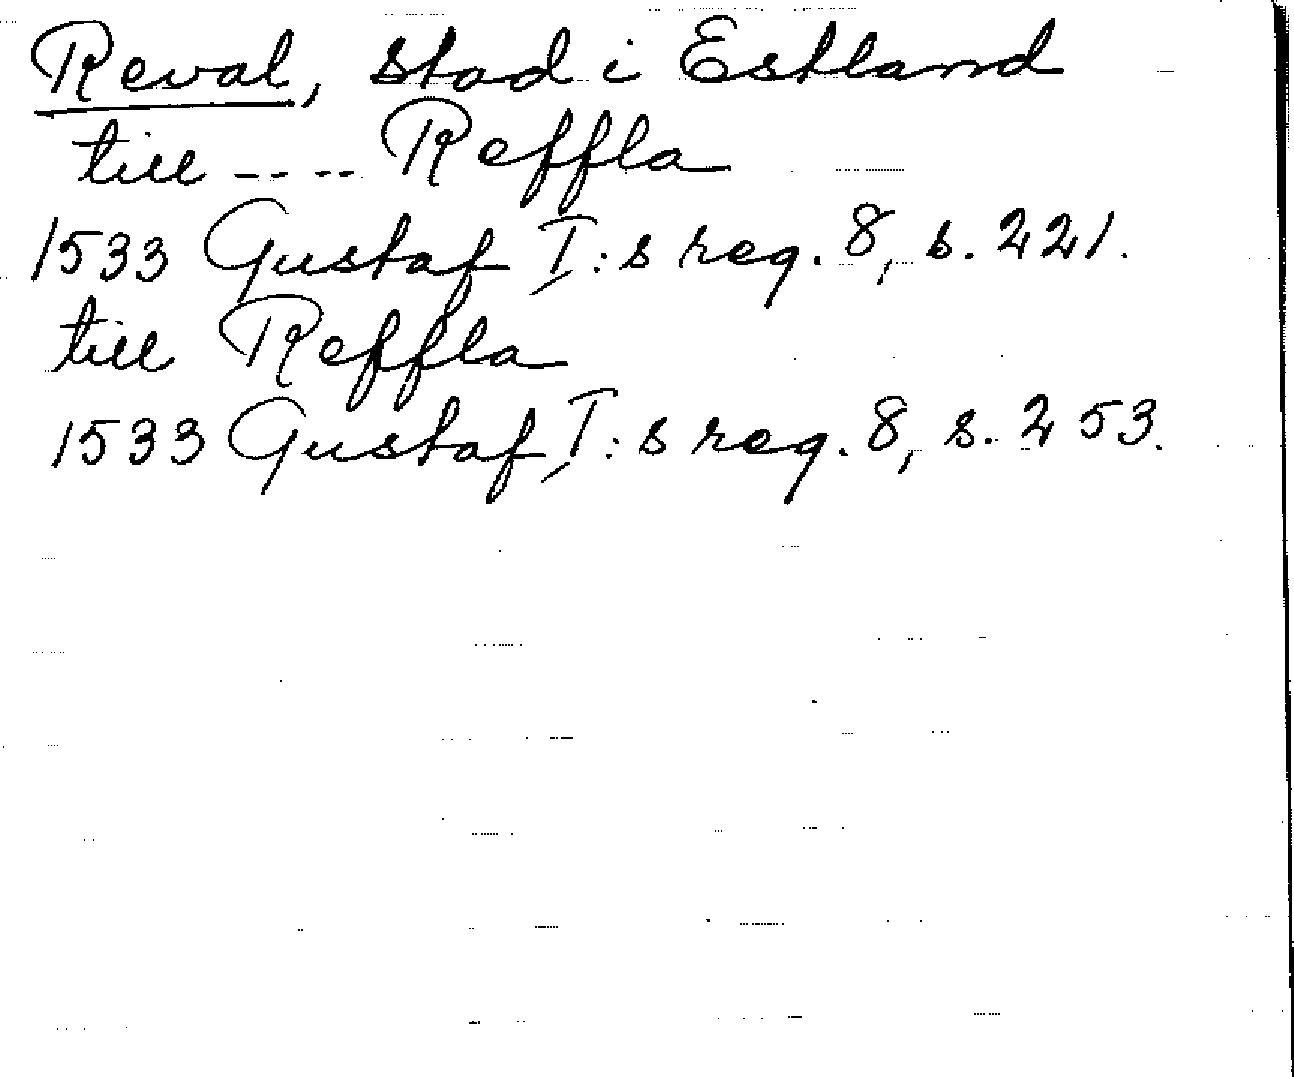 Reval, stad i Estland
till ---- Reffla
1533 Gustaf I:s reg. 8, s. 221.
till Reffla
1533 Gustaf I:s reg. 8, s. 253.